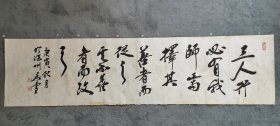 三人行
必有我
師焉
擇其
善者而
從之
其不善
者而改
之
庚寅秋月